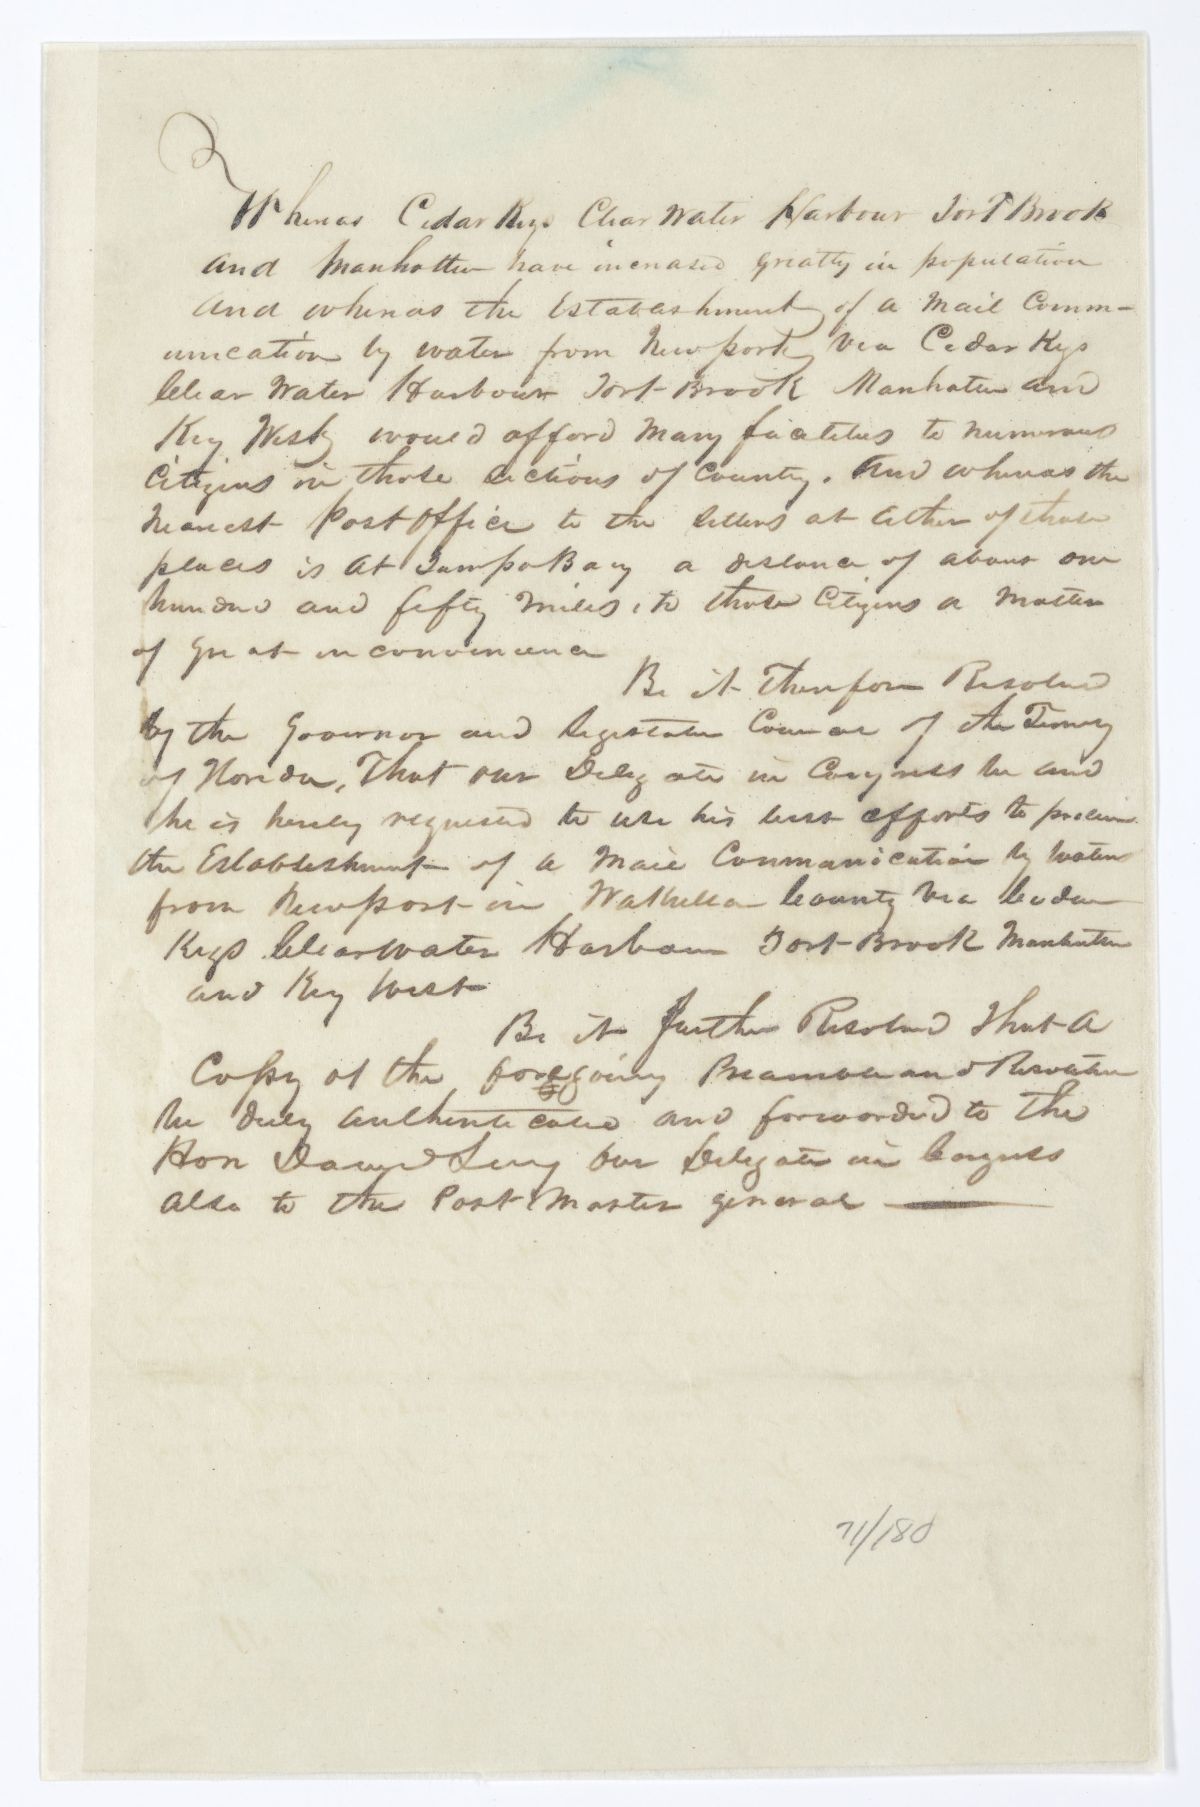 Whereas Cedar Keys Clear Water Harbour Fort Brook
and Manhatten have increased greatly in population
and whereas the Establishment of a Mail Comm-
unication by water from Newport via Cedar Keys
Clear Water Harbour Fort Brook Manhatten and
Key West would afford many facilities to numerous
Citizens in those sections of County. And whereas the
nearest Post Office to the settlers at either of those
places is at Tampa Bay a distance of about one
hundred and fifty Miles, to those Citizens a Matter
of great inconvenience
Be it Therefore Resolved
by the Governor and Legislative Council of the Territory
of Florida, That our Delegate in Congress be and
he is hereby requested to use his best efforts to procure
the Establishment of a Mail Communication by water
from Newport in Wakulla County via Cedar
Keys Clearwater Harbour Fort Brook Manhatten
and Key West
Be it further Resolved That a
Copy of the foregoing Preamble and Resolution
be duly authenticated and forwarded to the
Hon David Levy our Delegate in Congress
also to the Post Master general
71/180